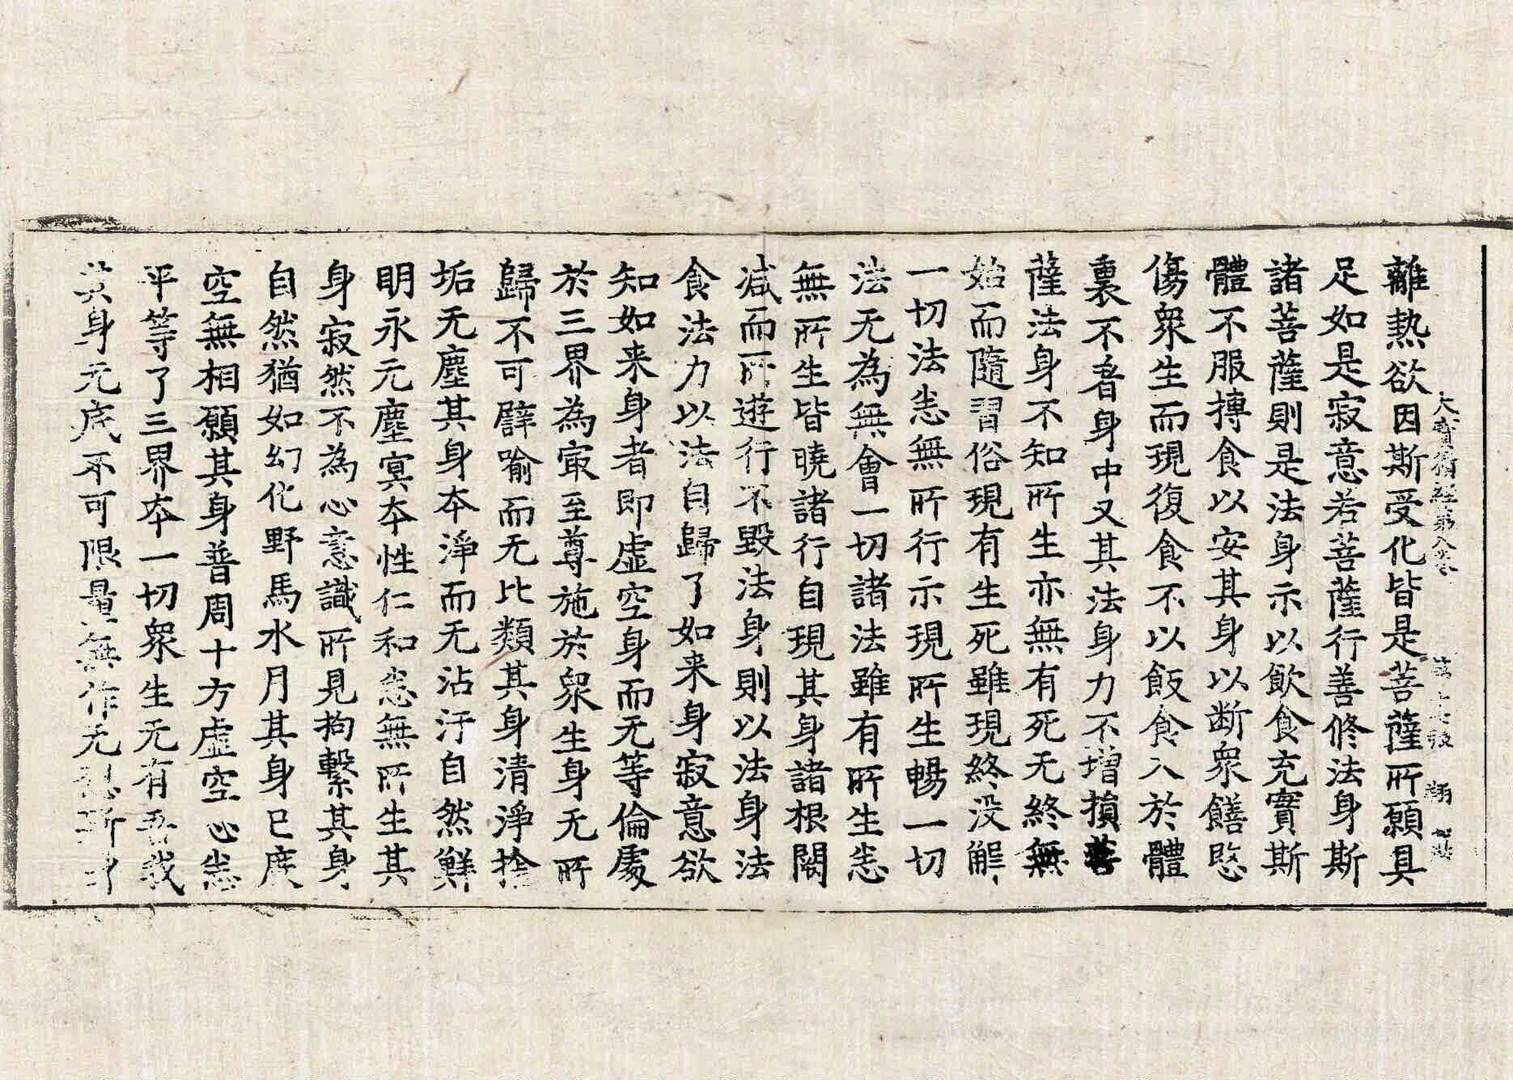 大寶積經第八卷
離熱欲因斯受化皆是菩薩所願具
足如是寂意若菩薩行善修法身斯
諸菩薩則是法身示以飲食充實斯
體不服摶食以安其身以断衆饍愍
傷衆生而現復食不以飯食入於體
裏不着身中又其法身力不增損菩
薩法身不知所生亦無有死无終無
始而隨習俗現有生死雖現終没解
一切法恚無所行示現所生暢一切
法无為無會一切諸法雖有所生恚
無所生皆曉諸行自現其身諸根闊
减而所遊行不毀法身則以法身法
食法力以法自歸了如来身寂意欲
知如来身者即虛空身而无等倫處
於三界為㝡至尊施於衆生身无所
歸不可譬喻而无比類其身清淨捨
垢无塵其身本淨而无沾汙自然鮮
明永无塵冥本性仁和恚無所生其
身寂然不為心意識所見拘繫其身
自然猶如幻化野馬水月其身已度
空無相願其身普周十方虛空心恚
平等了三界本一切衆生无有吾我
其身无底不可限量無作无